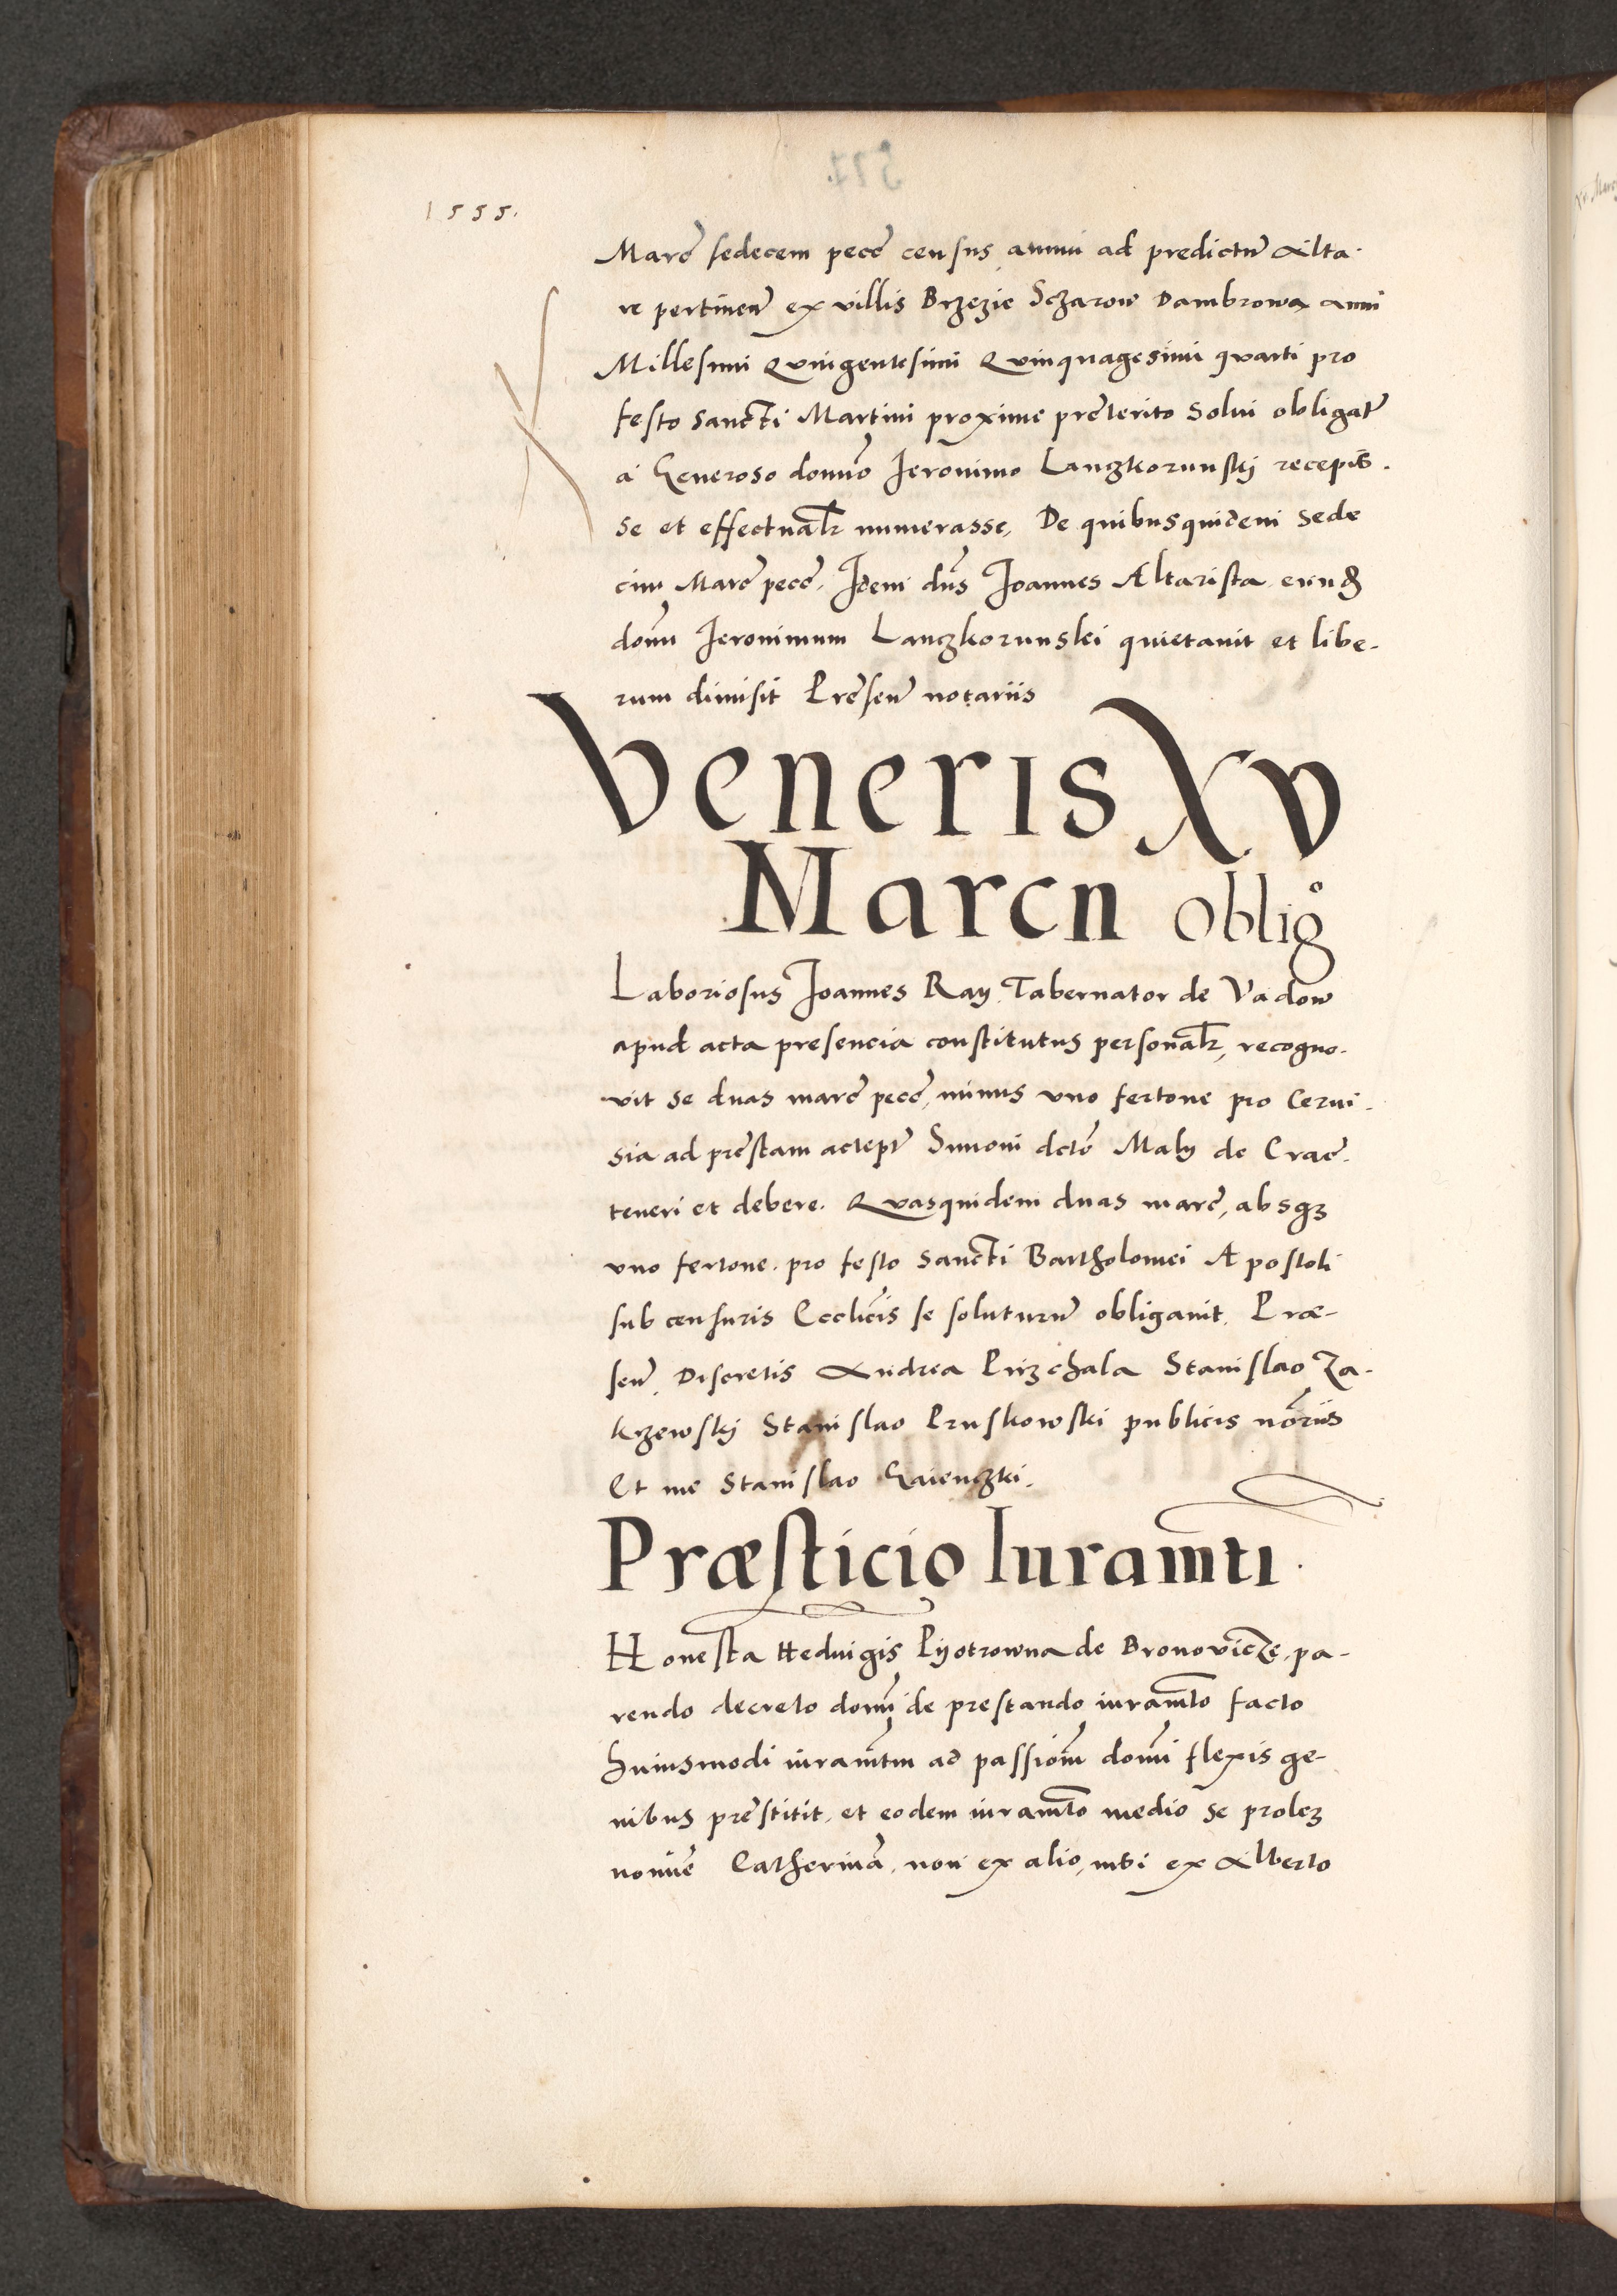 1555.
Marc̃ sedecem pecc̃ census annui ad predictũ Alta-
re pertineñ ex villis Brzezie Sczarow Dambrowa anni
Millesimi Quingentesimi Quinquagesimi quarti pro
festo Sancti Martini proxime preterito solui obligat̃
a Generoso domño Jeronimo Lanczkorunskj recepis-
se et effectualr numerasse, De quibusquidem sede
cim Marc̃ pecc̃. Idem dñs Joannes Altarista eund
domñ Jeronimum Lanczkorunski quietauit et libe-
rum dimisit Preseñ notariis
Veneris XV
Marcii Oblig°
Laboriosus Joannes Ray Tabernator de Vadow
apud acta presencia constitutus personalr, recogno-
vit se duas marc̃ pecc̃, minus vno fertone pro Cerui-
sia ad prestam accept̃ Simoni dcto Maly de Crac̃.
teneri et debere. Quasquidem duas marc̃, absqz
vno fertone. pro festo Sancti Bartholomei Apostoli
sub censuris Ecclicis se soluturũ obligauit. Præ-
señ. Discretis Andrea Przechala Stanislao Za-
krzewskj Stanislao Pruskowski publicis nõriis
Et me Stanislao Gaienczki.
Præsticio Iuramti.
Honesta Heduigis Pyotrowna de Bronovicze, pa-
rendo decreto domĩ de prestando iuramto facto
huiusmodi iuramtm ad passiom̃ domĩ flexis ge-
nibus prestitit, et eodem iuramto medio se prolez
nomie Catherinã, non ex alio, nisi ex Alberto